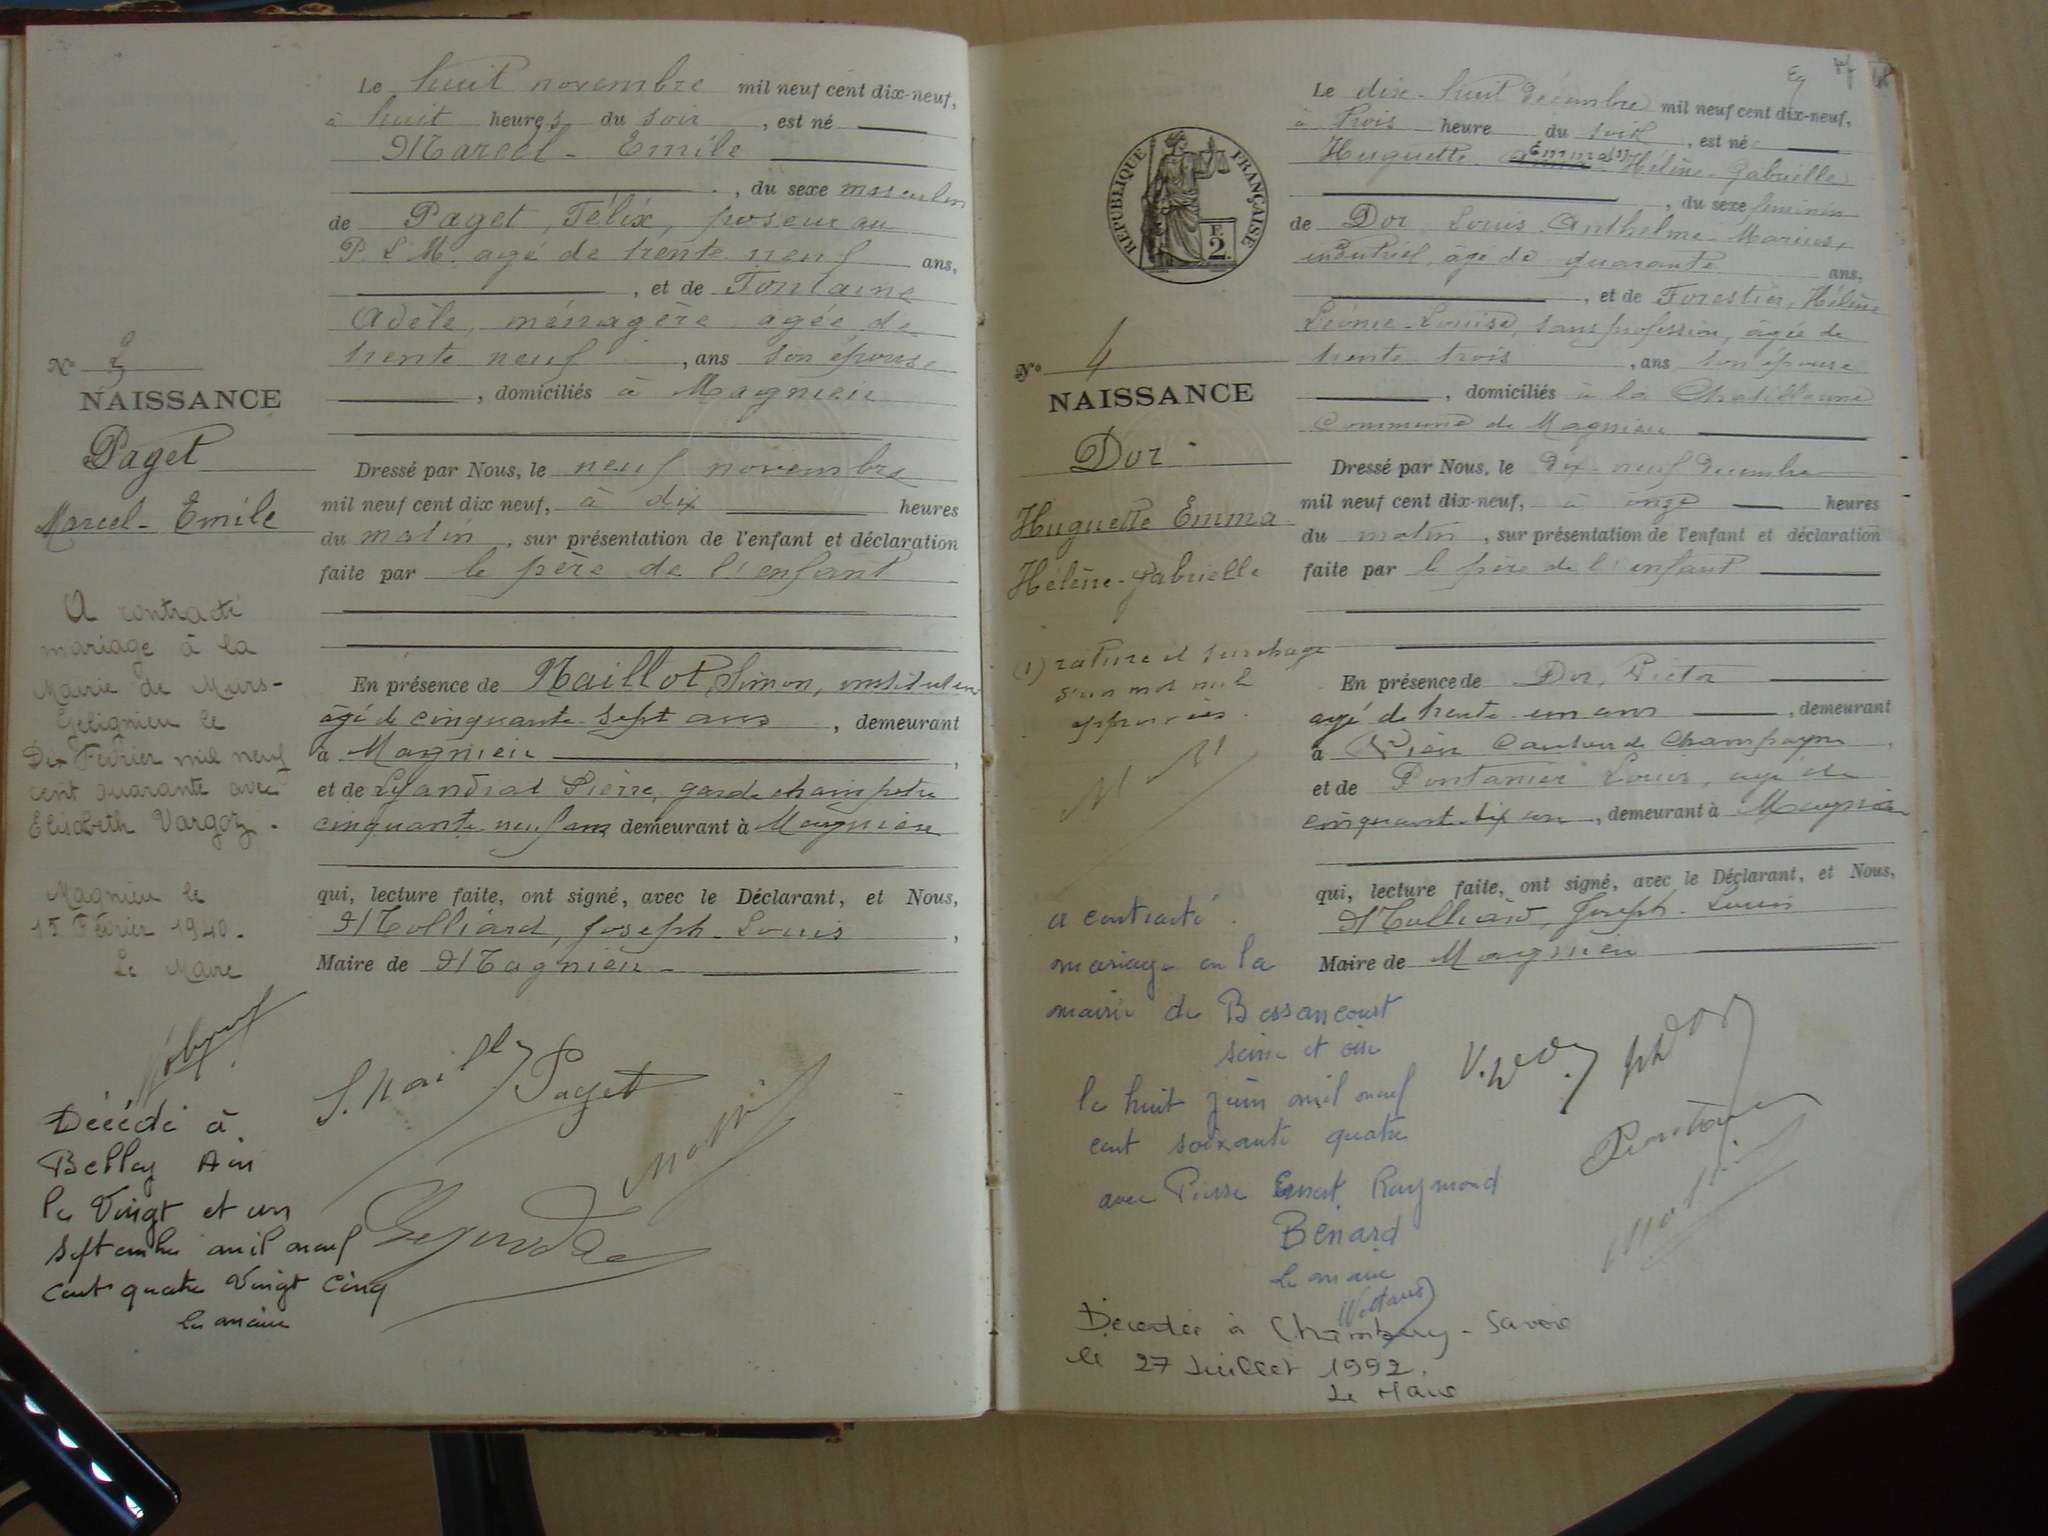 Le huit novembre mil neuf cent dix-neuf,
à huit heures du soir, est né
Marcel - Emile
, du sexe masculin
de Paget, Félix, poseur au
P. L. M. agé de trente neuf ans,
, et de Fontaine
Adèle, ménagère agée de
trente neuf, ans son épouse
, domiciliés à Magnieu
N° 3
NAISSANCE
Paget
Marcel - Emile
Dressé par Nous, le neuf novembre
mil neuf cent dix neuf, à dix heures
du matin, sur présentation de l'enfant et déclaration
faite par le père de l'enfant
A contracté
mariage à la
Mairie de Murs-
Gélignieu le
Dix Février mil neuf
cent quarante avec
Elisabeth Vargoz.
Magnieu le
15 Février 1940.
Le Maire
En présence de Naillot, Simon, instituteur
âgé de cinquante sept ans, demeurant
à Magnieu,
et de Pierre, garde champêtre
cinquante neuf ans demeurant à Magnieu
qui, lecture faite, ont signé, avec le Déclarant, et Nous,
Molliard, Joseph - Louis,
Maire de Magnieu -
Paget
Décédé à
Belley Ain
le Vingt et un
septembre mil neuf
cent quatre Vingt cinq
le maire
Le dix-huit décembre mil neuf cent dix-neuf,
à trois heure du soir, est né
Huguette Emma (1) Hélène - Gabrielle
, du sexe feminin
de Dor Louis Anthelme Marius,
industriel, âgé de quarante ans,
, et de Forestier, Hélène
Léonie - Louise, sans profession, âgée de
trente trois, ans son épouse
, domiciliés à la
Commune de Magnieu
REPUBLIQUE FRANÇAISE
F.
2.
N° 4
NAISSANCE
Dor
Huguette Emma
Hélène - Gabrielle
Dressé par Nous, le dix-neuf décembre
mil neuf cent dix-neuf, à onze heures
du matin, sur présentation de l'enfant et déclaration
faite par le père de l'enfant
(1) rature et surcharge
d'un mot nul
approuvés.
En présence de Dor, Victor
agé de trente un ans, demeurant
à canton de Champagne,
et de Pontanier Louis, agé de
cinquante six ans, demeurant à Magnieu
qui, lecture faite, ont signé, avec le Déclarant, et Nous,
Molliard, Joseph - Louis
Maire de Magnieu
a contracté
mariage en la
mairie de Bessancourt
seine et oise
le huit juin mil neuf
cent soixante quatre
avec Pierre Ernest Raymond
Bénard
le maire
Décédée à Chambéry - Savoie
le 27 Juillet 1992.
Le Maire